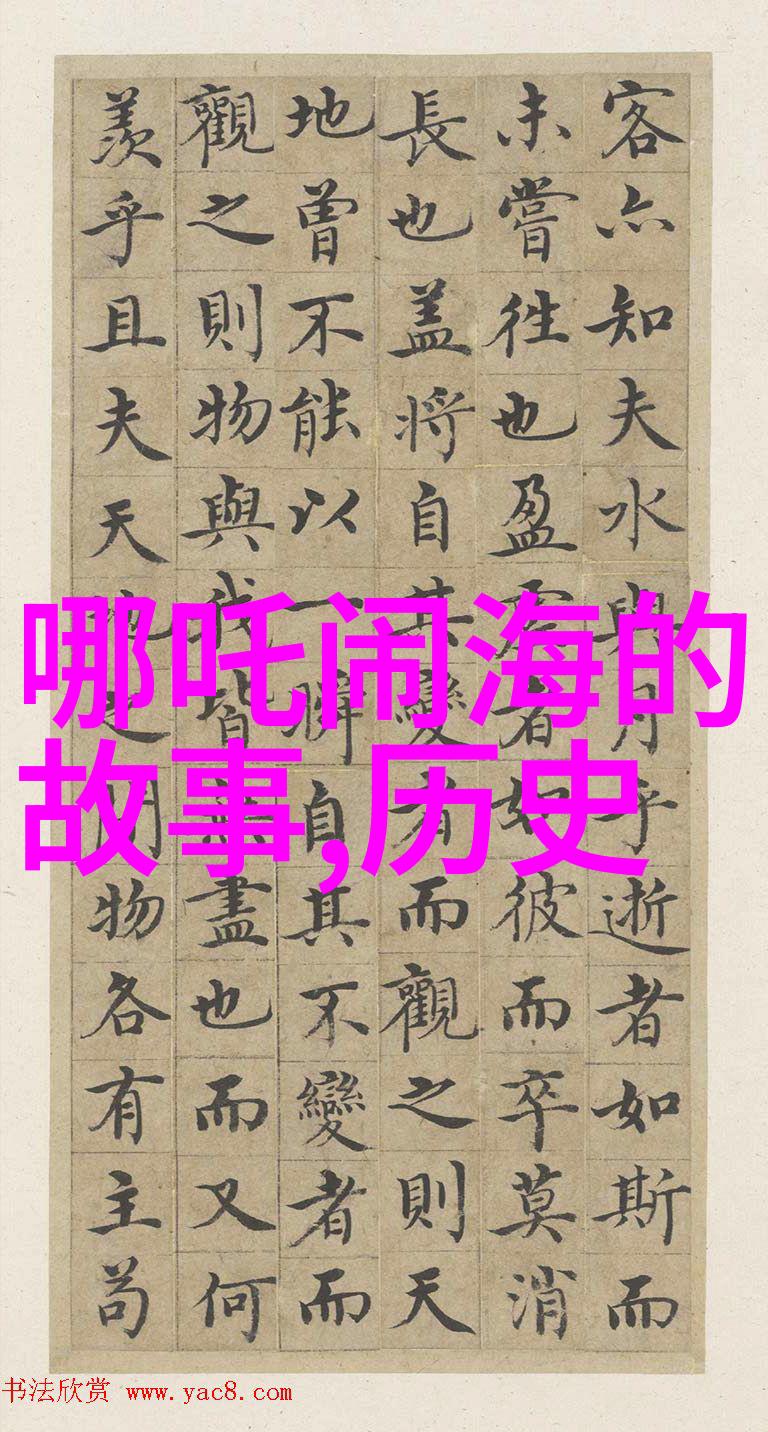 客亦知夫水與月乎逝者如斯而
未嘗往也盈虛者如彼而卒莫消
長也盖將自其變者而觀之則天
地曾不能以一瞬自其不變者而
觀之則物與我皆無盡也而又何
羨乎且夫天地之間物各有主苟
哪吒闹海的
故事,历史
书法欣赏 www.yac8.com